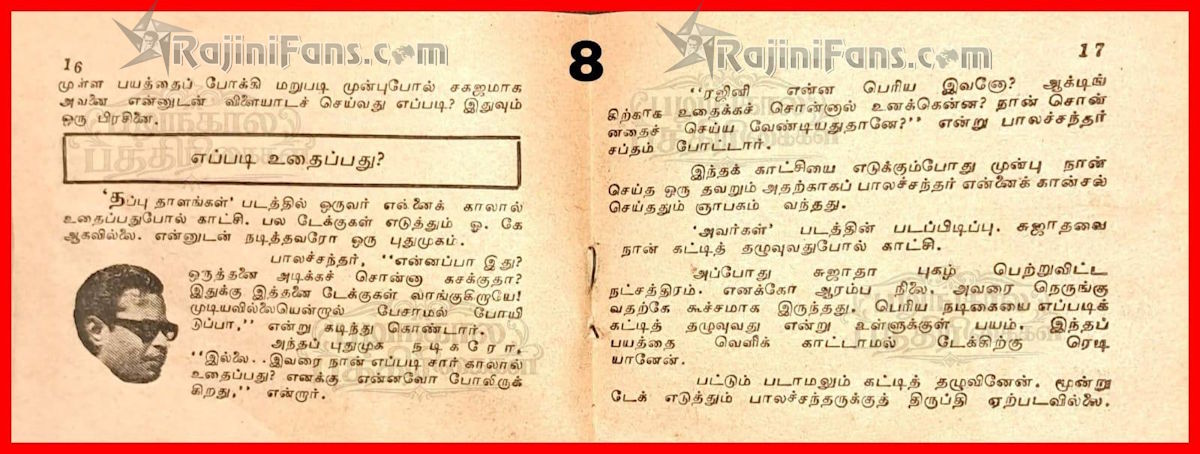 RajiniFans.com
16
முள்ள பயத்தைப் போக்கி மறுபடி முன்புபோல் சகஜமாக
அவனை என்னுடன் விளையாடச் செய்வது எப்படி? இதுவும்
ஒரு பிரசினை.
எப்படி உதைப்பது?
'தப்பு தாளங்கள்' படத்தில் ஒருவர் என்னைக் காலால்
உதைப்பதுபோல் காட்சி. பல டேக்குகள் எடுத்தும் ஓ. கே
ஆகவில்லை. என்னுடன் நடித்தவரோ ஒரு புதுமுகம்.
பாலச்சந்தர், "என்னப்பா இது?
ஒருத்தனை அடிக்கச் சொன்னா கசக்குதா?
இதுக்கு இத்தனை டேக்குகள் வாங்குகிறாயே!
முடியவில்லையென்றால் பேசாமல் போயி
டுப்பா," என்று கடிந்து கொண்டார்.
அந்தப் புதுமுக நடிகரோ,
"இல்லை..இவரை நான் எப்படி சார் காலால்
உதைப்பது? எனக்கு என்னவோ போலிருக்
கிறது," என்றார்.
8
RajiniFans.com
17
"ரஜினி என்ன பெரிய இவனோ? ஆக்டிங்
கிற்காக உதைக்கச் சொன்னால் உனக்கென்ன? நான் சொன்
னதைச் செய்ய வேண்டியதுதானே?" என்று பாலச்சந்தர்
சப்தம் போட்டார்.
இந்தக் காட்சியை எடுக்கும்போது முன்பு நான்
செய்த ஒரு தவறும் அதற்காகப் பாலச்சந்தர் என்னைக் கான்சல்
செய்ததும் ஞாபகம் வந்தது.
'அவர்கள்' படத்தின் படப்பிடிப்பு. சுஜாதவை
நான் கட்டித் தழுவுவதுபோல் காட்சி.
அப்போது சுஜாதா புகழ் பெற்றுவிட்ட
நட்சத்திரம். எனக்கோ ஆரம்ப நிலை. அவரை நெருங்கு
வதற்கே கூச்சமாக இருந்தது. பெரிய நடிகையை எப்படிக்
கட்டித் தழுவுவது என்று உள்ளுக்குள் பயம். இந்தப்
பயத்தை வெளிக் காட்டாமல் டேக்கிற்கு ரெடி
யானேன்.
பட்டும் படாமலும் கட்டித் தழுவினேன். மூன்று
டேக் எடுத்தும் பாலச்சந்தருக்குத் திருப்தி ஏற்படவில்லை.